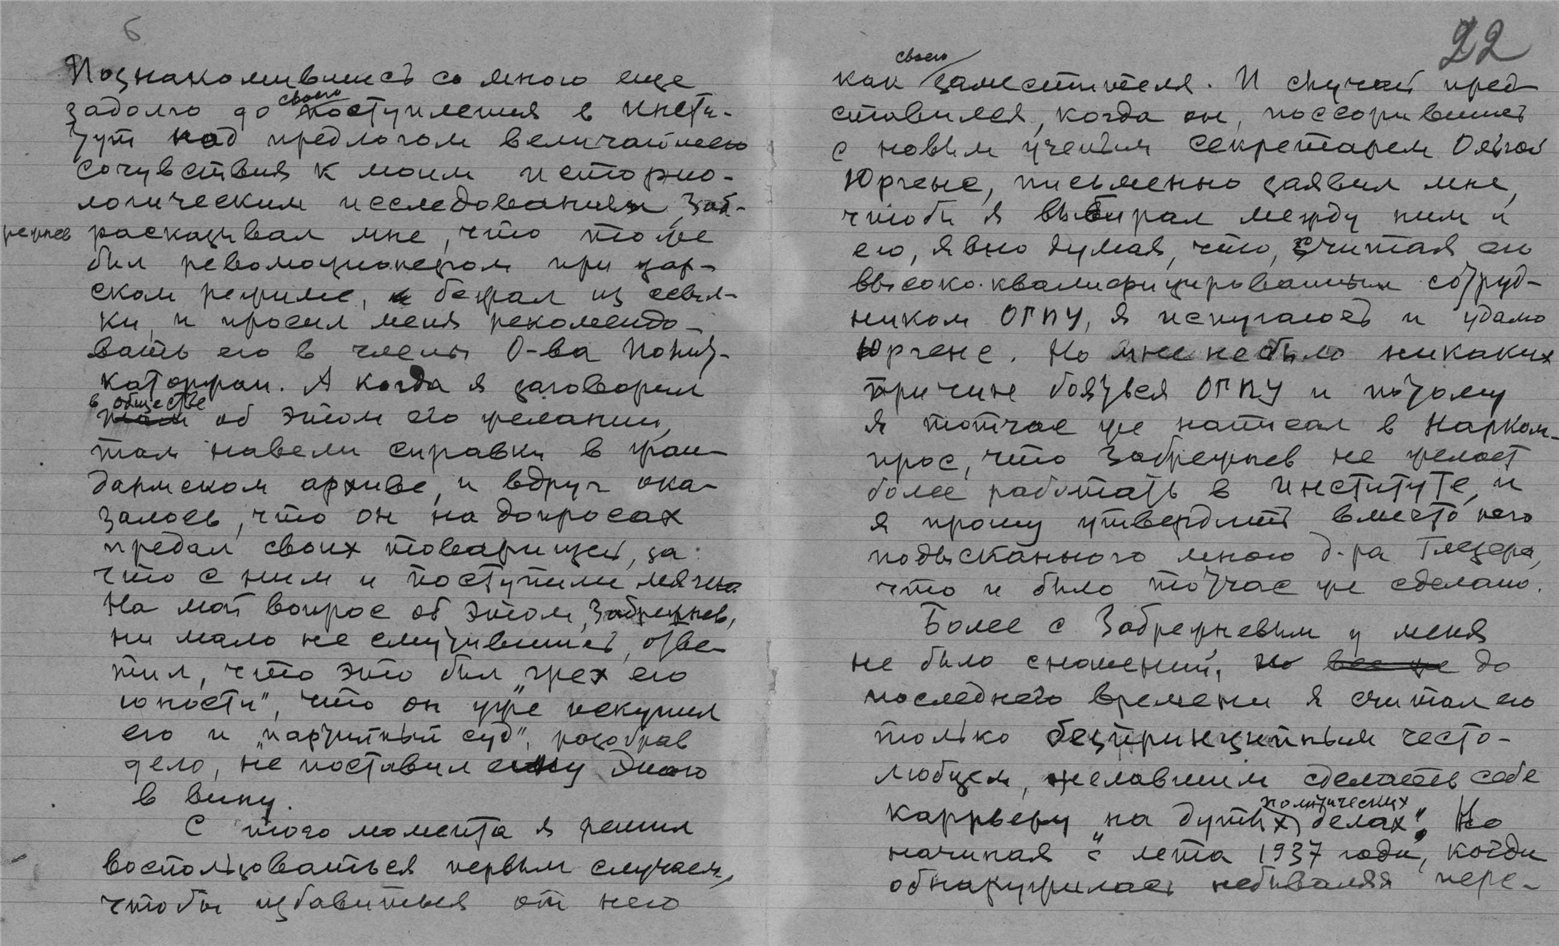 6
Познакомившись со мною еще
задолго до своего поступления в Инсти-
тут под предлогом величайшего
сочувствия к моим историо-
логическим исследованиям, Заб-
режнев расказывал мне, что тоже
был революционером при цар-
ском режиме, бежал из ссыл-
ки, и просил меня рекомендо-
вать его в члены О-ва Полит-
каторжан. А когда я заговорил
в обществе об этом его желании,
там навели справки в жан-
дармском архиве, и вдруг ока-
залось, что он на допросах
предал своих товарищей, за
что с ним и поступили мягко.
На мой вопрос об этом, Забрежнев,
ни мало не смутившись, отве-
тил, что это был "грех его
юности", что он уже искупил
его и "партийный суд", разобрав
дело, не поставил ему этого
в вину.
С того момента я решил
воспользоваться первым случаем,
чтобы избавиться от него
22
как своего заместителя. И случай пред-
ставился, когда он, поссорившись
с новым ученым секретарем Ольгой
Юргенс, письменно заявил мне,
чтобы я выбирал между ним и
ею, явно думая, что, считая его
высоко-квалифицированным сотруд-
ником ОГПУ, я испугаюсь и удалю
Юргенс. Но мне не было никаких
причин бояться ОГПУ и потому
я тотчас же написал в Нарком-
прос, что Забрежнев не желает
более работать в Институте, и
я прошу утвердить вместо него
подысканного мною д-ра Глезера,
что и было тотчас же сделано.
Более с Забрежневым у меня
не было сношений, но все же до
последнего времени я считал его
только беспринципным често-
любцем, желавшим сделать себе
каррьеру "на дутых политических делах". Но
начиная с лета 1937 года, когда
обнаружилась небывалая пере-